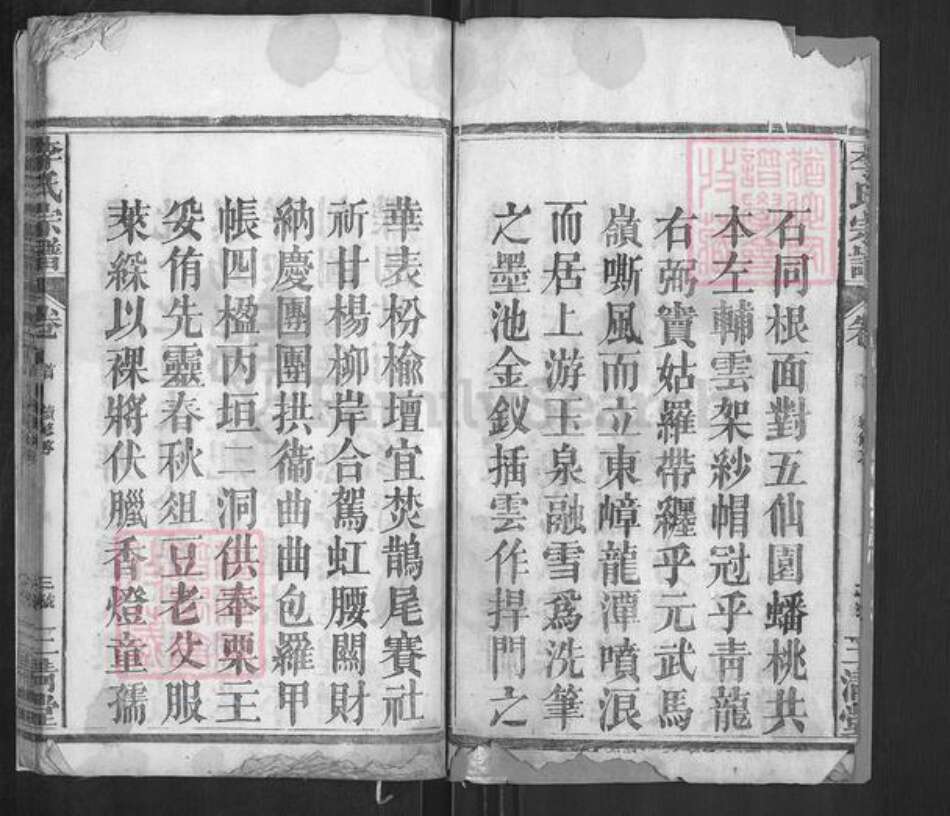 李氏宗譜
石同根面對五仙園蟠桃共
本左輔雲架紗帽冠乎青龍
右弼寶姑羅帶纒乎元武馬
嶺嘶風而立東嶂龍潭噴浪
而居上游玉泉融雪爲洗筆
之墨池金釵插雲作捍門之
華表枌榆壇宜焚鵲尾賽社
祈甘楊柳岸合駕虹腰闢財
納慶團團拱衞曲曲包羅甲
帳四楹丙垣二洞供奉栗主
妥侑先靈春秋俎豆老父服
萊綵以祼將伏臘香燈童孺
李氏宗譜
卷首
三讓堂